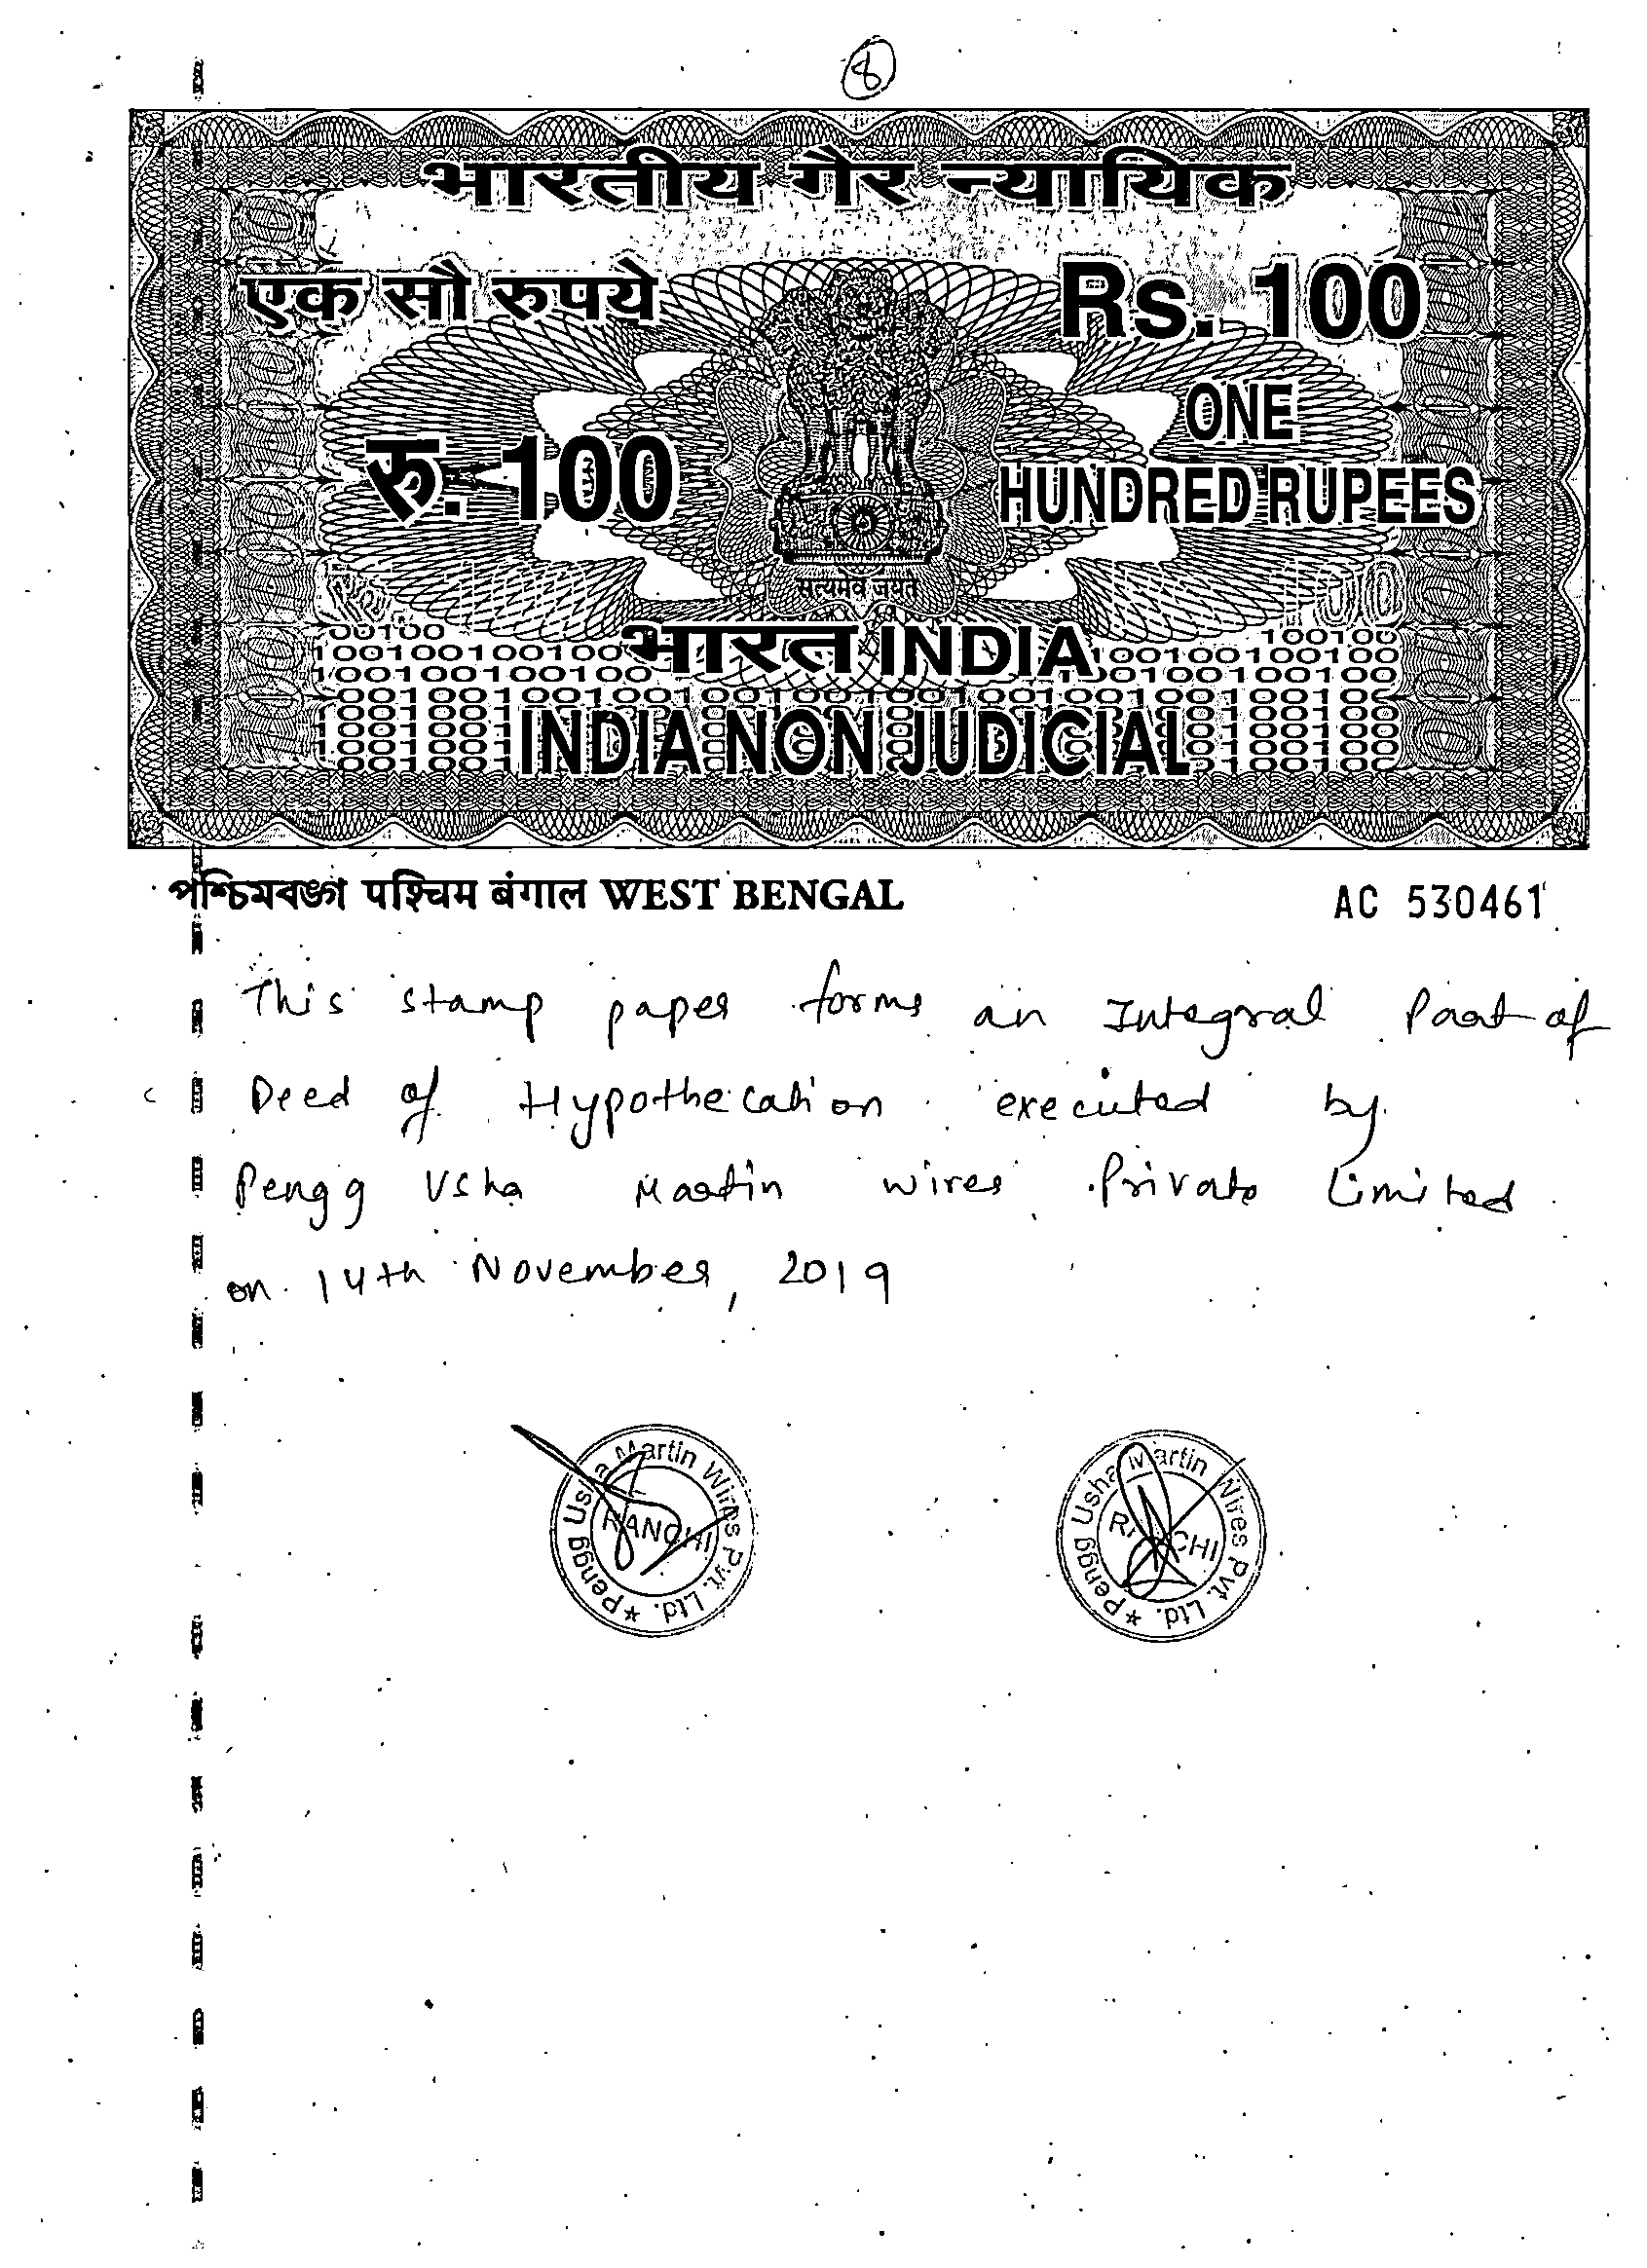 8
भारतीय गैर न्यायिक
एक सौ रुपये
Rs. 100
रु. 100
ONE
HUNDRED RUPEES
सत्यमेव जयते
भारत INDIA
INDIA NON JUDICIAL
পশ্চিমবঙ্গ पश्चिम बंगाल WEST BENGAL
AC 530461
This stamp paper forms an Integral Part of
Deed of Hypothecation executed by
Pengg Usha Martin wires Private Limited
on 14th November, 2019
Pengg Usha Martin Wires Pvt. Ltd. *
RANCHI
Pengg Usha Martin Wires Pvt. Ltd. *
RANCHI